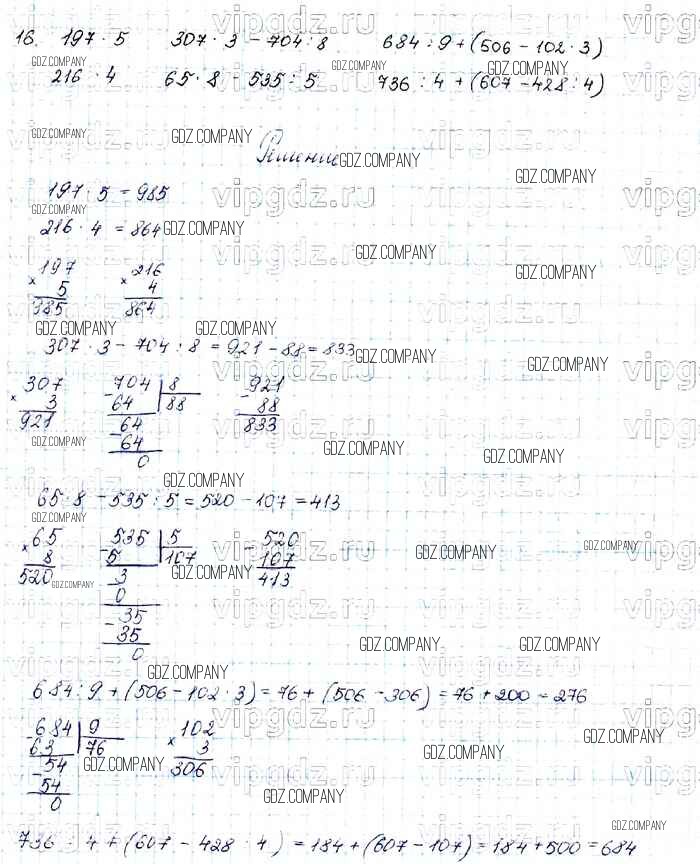 16. 197 · 5   307 · 3 - 704 : 8   684 : 9 + (506 - 102 · 3)
216 · 4   65 · 8 - 535 : 5   736 : 4 + (607 - 428 : 4)
Решение
197 · 5 = 985
216 · 4 = 864
197   216
× 5   × 4
985   864
307 · 3 - 704 : 8 = 921 - 88 = 833
307   704 | 8   921
× 3   - 64 | 88   - 88
921   - 64   833
64
0
65 · 8 - 535 : 5 = 520 - 107 = 413
65   535 | 5   520
× 8   - 5 | 107   - 107
520   3   413
0
- 35
35
0
684 : 9 + (506 - 102 · 3) = 76 + (506 - 306) = 76 + 200 = 276
684 | 9   102
- 63 | 76   × 3
- 54   306
54
0
736 : 4 + (607 - 428 : 4) = 184 + (607 - 107) = 184 + 500 = 684
GDZ.COMPANY
vipgdz.ru